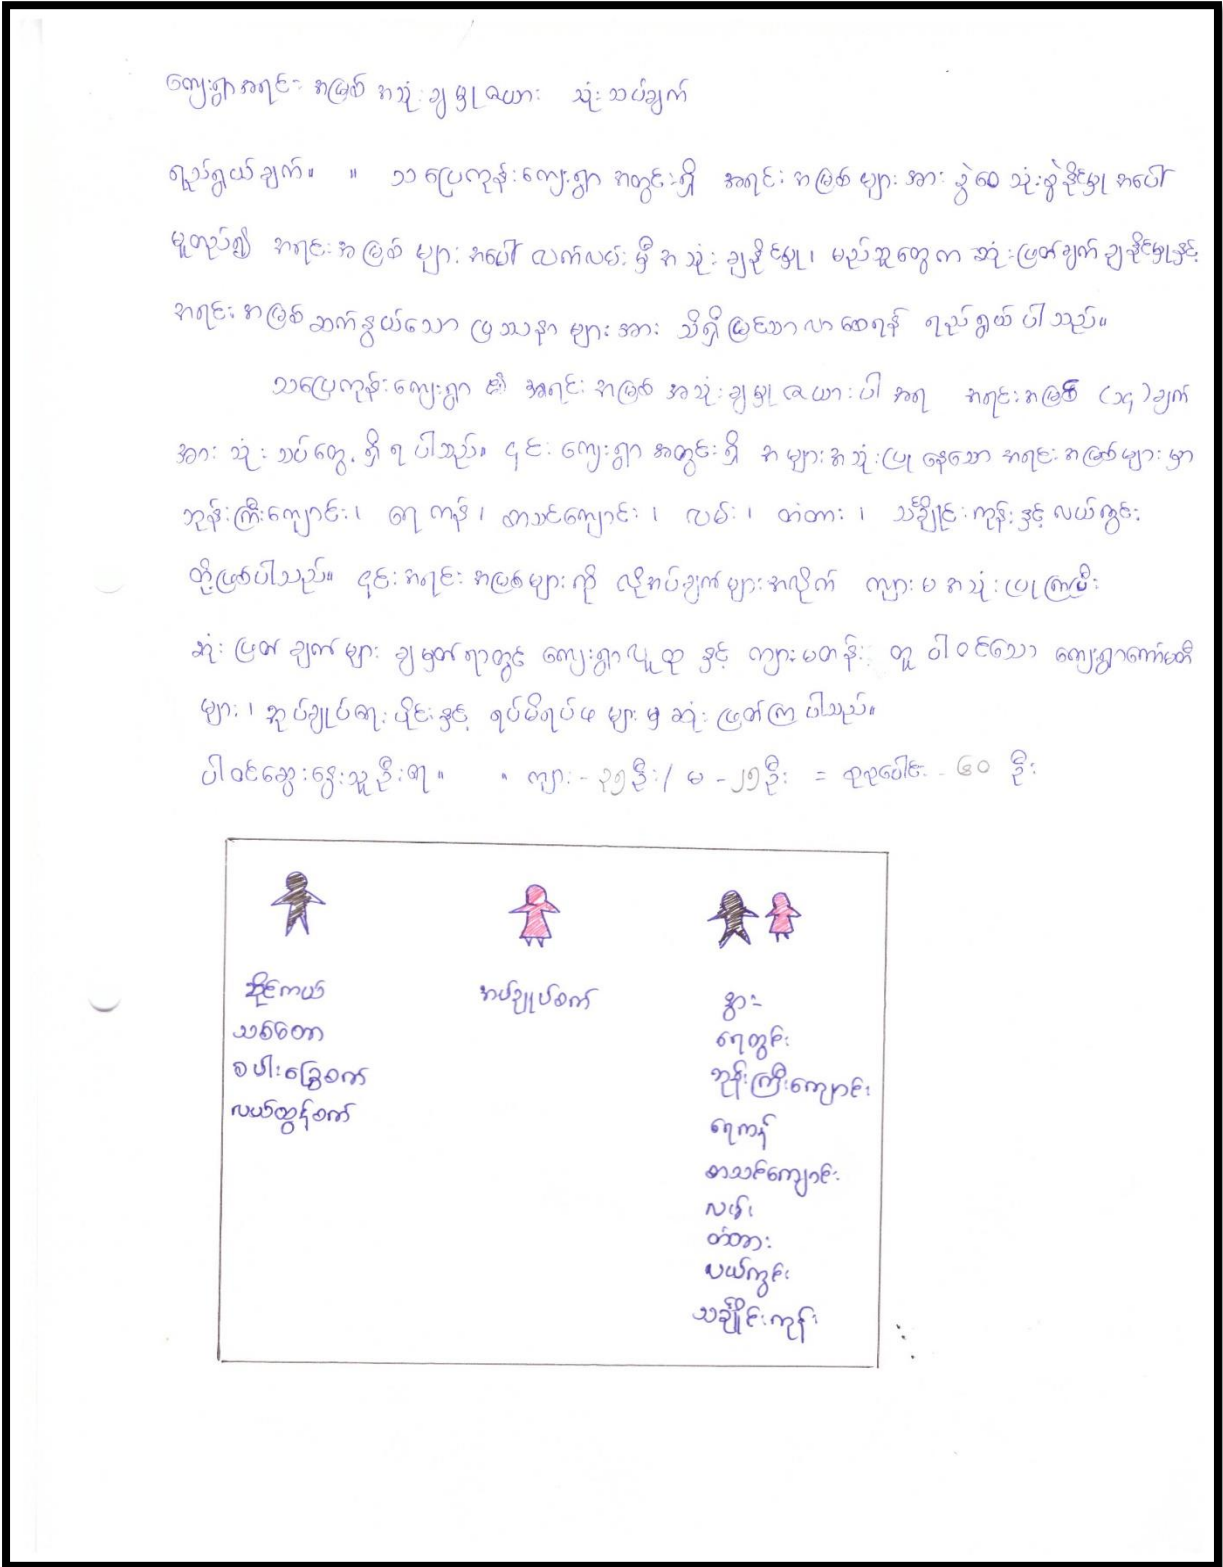 ကျေးရွာအရင်းအမြစ် အသုံးချမှုဇယား သုံးသပ်ချက်
ရည်ရွယ်ချက်။ ။ သပြေကုန်းကျေးရွာ အတွင်းရှိ အရင်းအမြစ်များအား ခွဲဝေသုံးစွဲနိုင်မှု အပေါ်
မူတည်၍ အရင်းအမြစ်များ အပေါ် လက်လှမ်းမှီ အသုံးချနိုင်မှု၊ မည်သူတွေက ဆုံးဖြတ်ချက်ချနိုင်မှုနှင့်
အရင်းအမြစ် ဆက်နွယ်သော ပြဿနာများအား သိရှိမြင်သာလာစေရန် ရည်ရွယ်ပါသည်။
သပြေကုန်းကျေးရွာ ၏ အရင်းအမြစ် အသုံးချမှုဇယားပါ အရ အရင်းအမြစ် (၁၄)ချက်
အား သုံးသပ်တွေ့ရှိရပါသည်။ ၎င်းကျေးရွာအတွင်းရှိ အများအသုံးပြုနေသော အရင်းအမြစ်များမှာ
ဘုန်းကြီးကျောင်း၊ ရေကန်၊ စာသင်ကျောင်း၊ လမ်း၊ တံတား၊ သင်္ချိုင်းကုန်းနှင့် လယ်ကွင်း
တို့ဖြစ်ပါသည်။ ၎င်းအရင်းအမြစ်များကို လိုအပ်ချက်များအလိုက် ကျားမအသုံးပြုကြပြီး
ဆုံးဖြတ်ချက်များ ချမှတ်ရာတွင် ကျေးရွာလူထု နှင့် ကျားမတန်းတူ ပါဝင်သော ကျေးရွာကော်မတီ
များ၊ အုပ်ချုပ်ရေးပိုင်းနှင့် ရပ်မိရပ်ဖများမှ ဆုံးဖြတ်ကြပါသည်။
ပါဝင်ဆွေးနွေးသူဦးရေ။ ။ ကျား - ၃၅ဦး / မ - ၂၅ဦး = စုစုပေါင်း - ၆၀ ဦး
ဆိုင်ကယ်
သစ်တော
စပါးခြွေစက်
လယ်ထွန်စက်
အပ်ချုပ်စက်
နွား
ရေတွင်း
ဘုန်းကြီးကျောင်း
ရေကန်
စာသင်ကျောင်း
လမ်း
တံတား
လယ်ကွင်း
သချိုင်းကုန်း